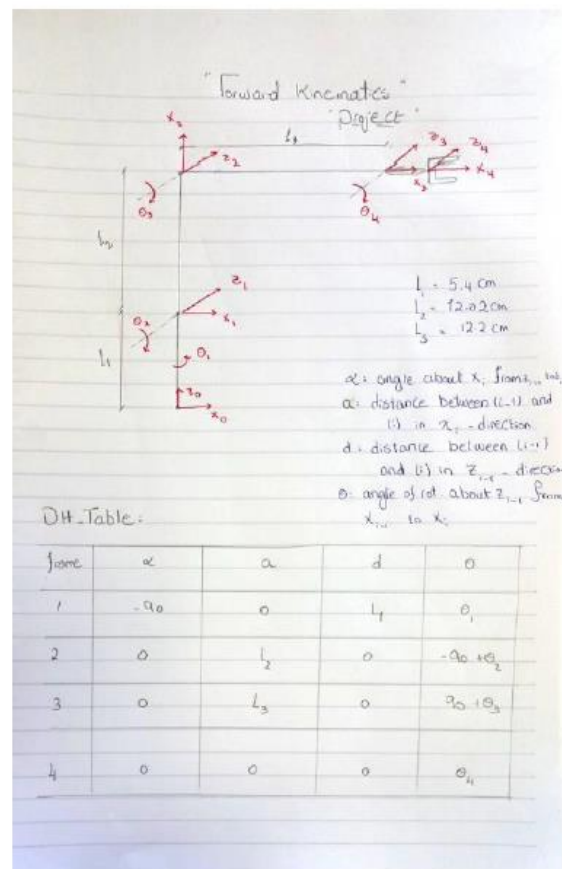 "Forward Kinematics"
"Project"
x₂
L₃
z₂
z₃
z₄
x₃
x₄
θ₃
θ₄
L₂
z₁
x₁
θ₂
θ₁
L₁
z₀
x₀
L₁ = 5.4 cm
L₂ = 12.02 cm
L₃ = 12.2 cm
α: angle about xᵢ from zᵢ₋₁
a: distance between (i-1) and
(i) in xᵢ - direction
d: distance between (i-1)
and (i) in zᵢ₋₁ - direction
θ: angle of rot about zᵢ₋₁ from
xᵢ₋₁ to xᵢ
DH-Table:
frame α a d θ
1 -90 0 L₁ θ₁
2 0 L₂ 0 -90 + θ₂
3 0 L₃ 0 90 + θ₃
4 0 0 0 θ₄